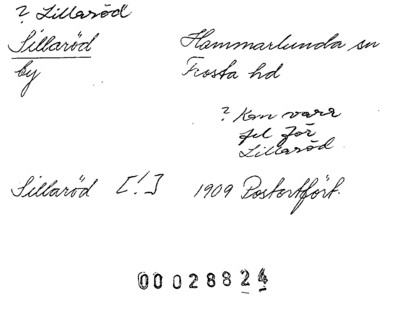 ? Lillaröd
Sillaröd Hammarlunda sn
by Frosta hd
? Kan vara
fel för
Lillaröd
Sillaröd [!] 1909 Postortfört.
00028824